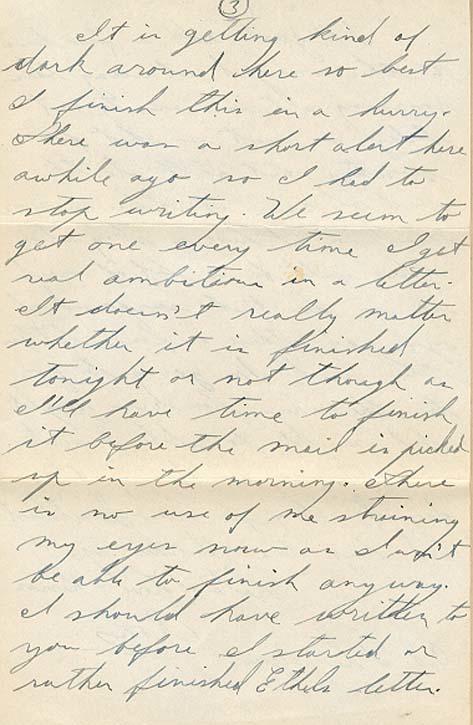 3
It is getting kind of
dark around here so best
I finish this in a hurry.
There was a short alert here
awhile ago so I had to
stop writing. We seem to
get one every time I get
real ambitious in a letter.
It doesn't really matter
whether it is finished
tonight or not though as
I'll have time to finish
it before the mail is picked
up in the morning. There
is no use of me straining
my eyes now as I won't
be able to finish anyway.
I should have written to
you before I started or
rather finished Ethels letter.